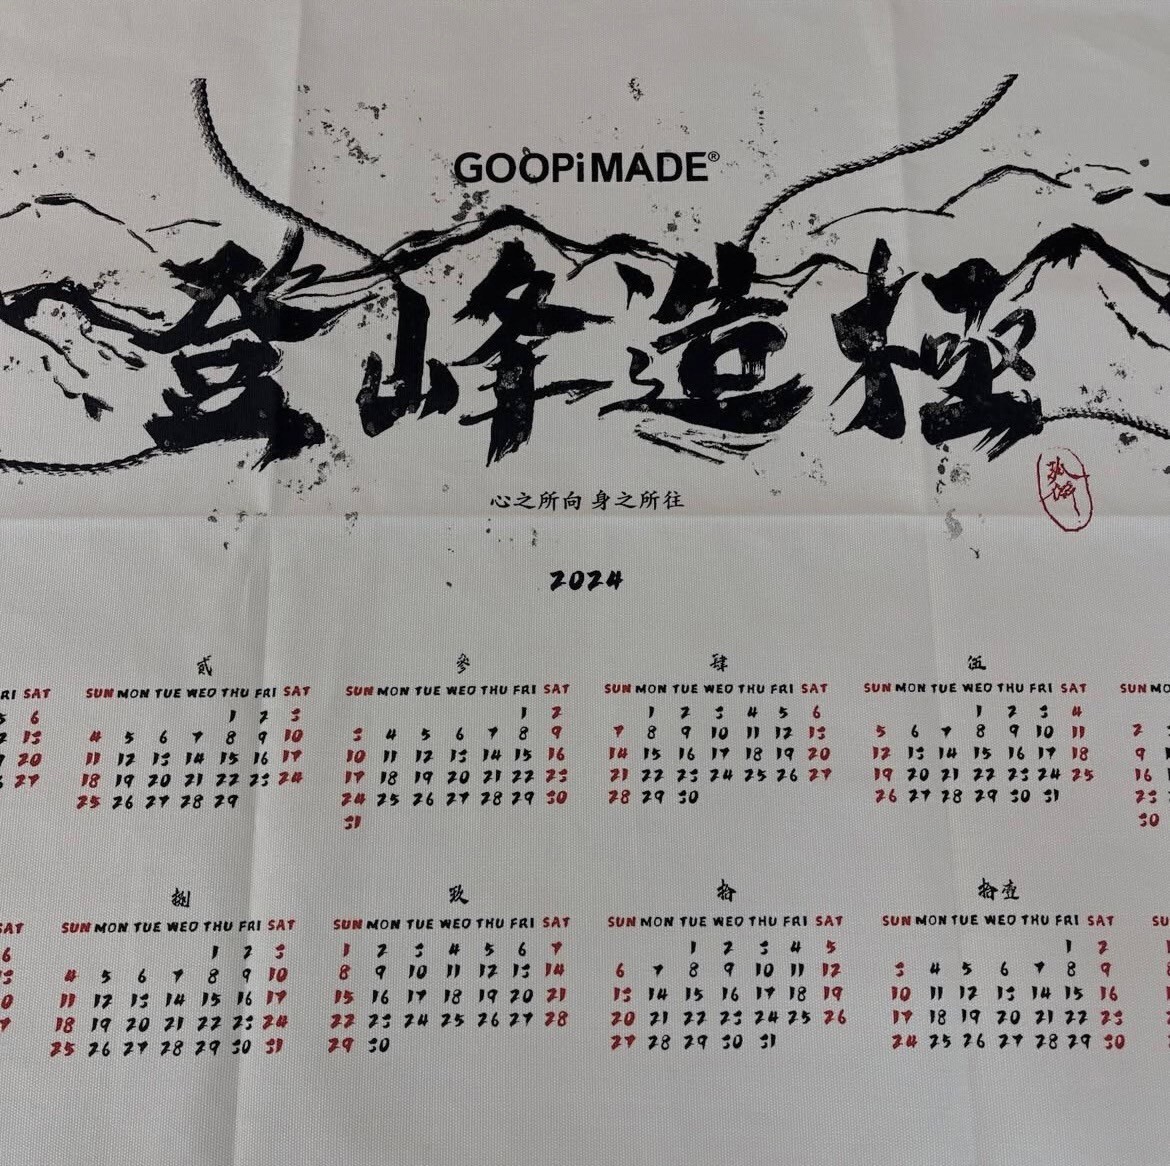 GOOPiMADE®
登峰造極
心之所向 身之所往
2024
SAT
6
13
20
27
貳
SUN MON TUE WED THU FRI SAT
1 2 3
4 5 6 7 8 9 10
11 12 13 14 15 16 17
18 19 20 21 22 23 24
25 26 27 28 29
參
SUN MON TUE WED THU FRI SAT
1 2
3 4 5 6 7 8 9
10 11 12 13 14 15 16
17 18 19 20 21 22 23
24 25 26 27 28 29 30
31
肆
SUN MON TUE WED THU FRI SAT
1 2 3 4 5 6
7 8 9 10 11 12 13
14 15 16 17 18 19 20
21 22 23 24 25 26 27
28 29 30
伍
SUN MON TUE WED THU FRI SAT
1 2 3 4
5 6 7 8 9 10 11
12 13 14 15 16 17 18
19 20 21 22 23 24 25
26 27 28 29 30 31
SUN
2
9
16
23
30
SAT
6
捌
SUN MON TUE WED THU FRI SAT
1 2 3
4 5 6 7 8 9 10
11 12 13 14 15 16 17
18 19 20 21 22 23 24
25 26 27 28 29 30 31
玖
SUN MON TUE WED THU FRI SAT
1 2 3 4 5 6 7
8 9 10 11 12 13 14
15 16 17 18 19 20 21
22 23 24 25 26 27 28
29 30
拾
SUN MON TUE WED THU FRI SAT
1 2 3 4 5
6 7 8 9 10 11 12
13 14 15 16 17 18 19
20 21 22 23 24 25 26
27 28 29 30 31
拾壹
SUN MON TUE WED THU FRI SAT
1 2
3 4 5 6 7 8 9
10 11 12 13 14 15 16
17 18 19 20 21 22 23
24 25 26 27 28 29 30